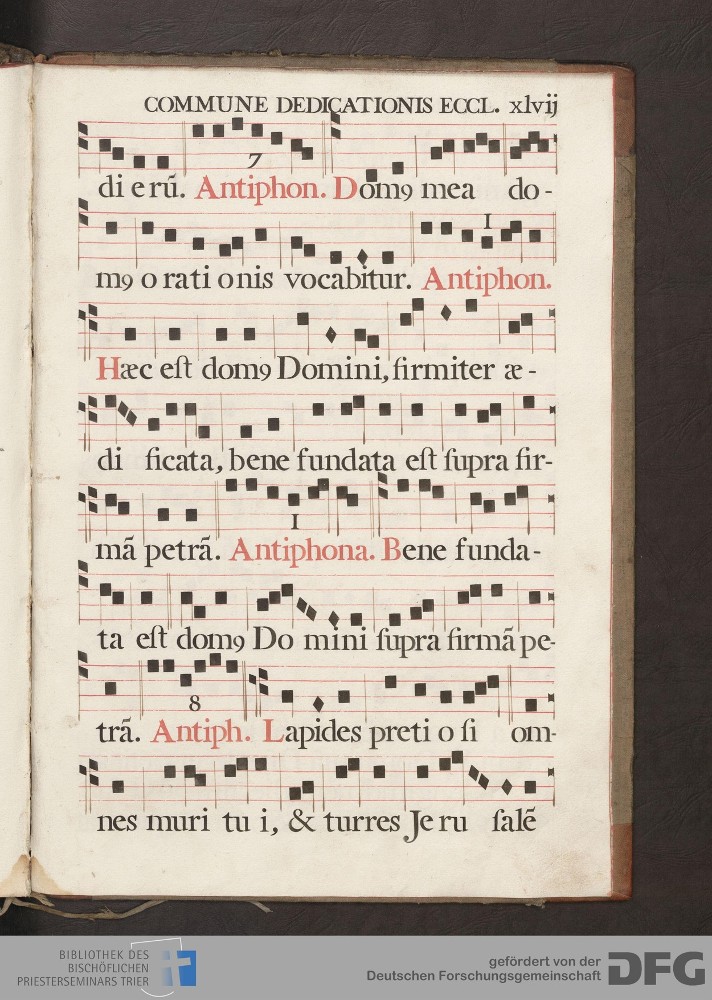 COMMUNE DEDICATIONIS ECCL. xlvij
7
di e rũ. Antiphon. Domꝰ mea do-
1
mꝰ o rati onis vocabitur. Antiphon.
Hæc eſt domꝰ Domini, firmiter æ-
di ficata, bene fundata eſt ſupra fir-
1
mã petrã. Antiphona. Bene funda-
ta eſt domꝰ Do mini ſupra firmã pe-
8
trã. Antiph. Lapides preti o ſi om-
nes muri tu i, & turres Je ru ſalẽ
BIBLIOTHEK DES
BISCHÖFLICHEN
PRIESTERSEMINARS TRIER
gefördert von der
Deutschen Forschungsgemeinschaft
DFG